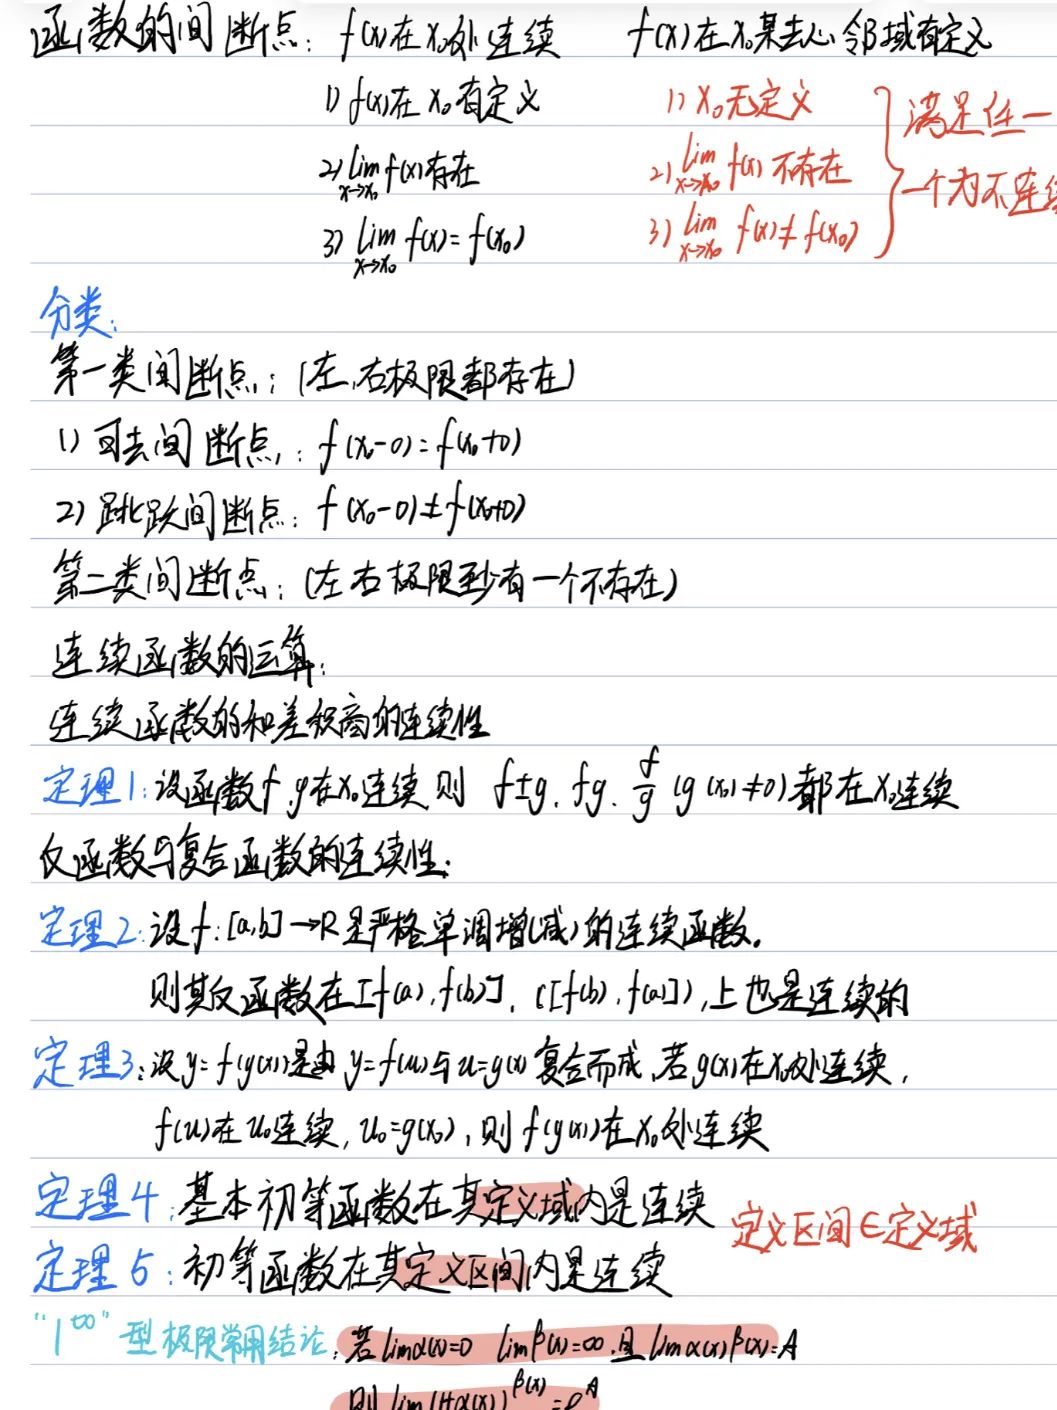 函数的间断点: f(x)在x₀处连续 f(x)在x₀某去心邻域有定义
1) f(x)在x₀有定义 1) x₀无定义
2) lim x→x₀ f(x)存在 2) lim x→x₀ f(x)不存在
3) lim x→x₀ f(x)=f(x₀) 3) lim x→x₀ f(x)≠f(x₀)
满足任一
一个为不连续
分类:
第一类间断点: (左,右极限都存在)
1) 可去间断点: f(x₀-0)=f(x₀+0)
2) 跳跃间断点: f(x₀-0)≠f(x₀+0)
第二类间断点: (左右极限至少有一个不存在)
连续函数的运算:
连续函数的和差积商的连续性
定理1: 设函数f.g在x₀连续则 f±g. fg. f/g (g(x₀)≠0)都在x₀连续
反函数与复合函数的连续性:
定理2: 设f:[a,b]→R是严格单调增(减)的连续函数.
则其反函数在[f(a),f(b)], ([f(b),f(a)]),上也是连续的
定理3: 设y=f(g(x))是由y=f(u)与u=g(x)复合而成,若g(x)在x₀处连续,
f(u)在u₀连续,u₀=g(x₀),则f(g(x))在x₀处连续
定理4: 基本初等函数在其定义域内是连续
定义区间∈定义域
定理5: 初等函数在其定义区间内是连续
"1^∞"型极限常用结论: 若limα(x)=0 limβ(x)=∞.且limα(x)β(x)=A
则lim(1+α(x))^β(x)=e^A